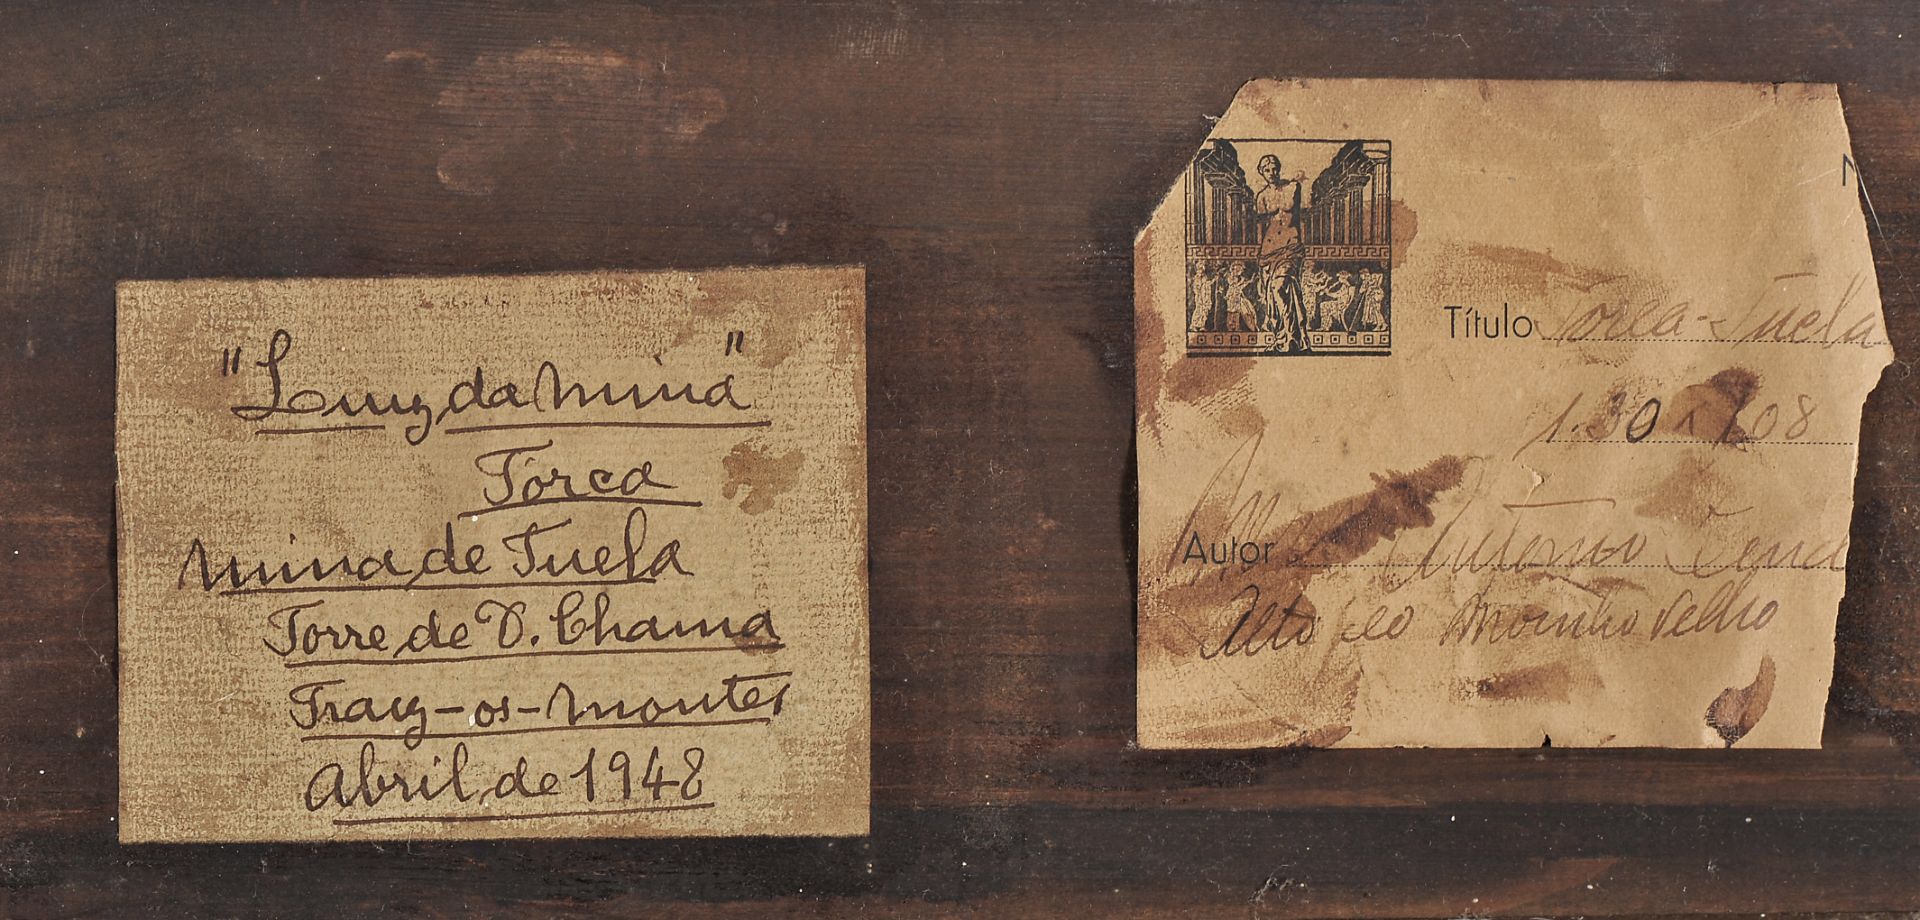 "Luz da mina"
Torca
mina de Tuela
Torre de D. Chama
Traz-os-montes
Abril de 1948
N
Título Torca-Tuela
1.30 x 1.08
Autor Antonio
Alto do Moinho Velho